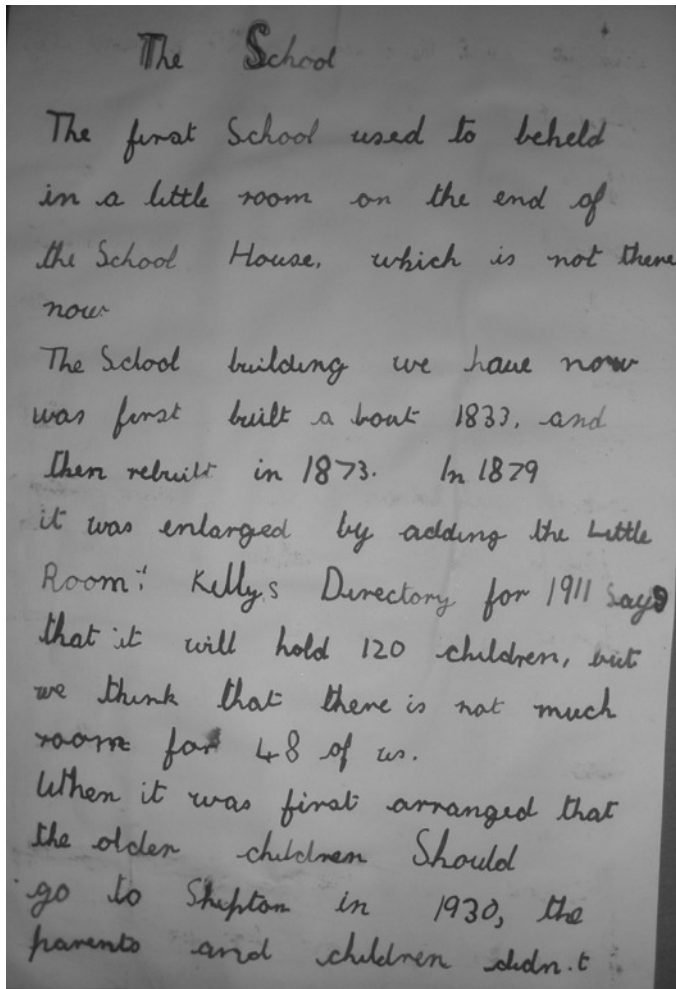 The School
The first School used to beheld
in a little room on the end of
the School House, which is not there
now
The School building we have now
was first built a bout 1833, and
then rebuilt in 1873. In 1879
it was enlarged by adding the Little
Room". Kellys Directory for 1911 says
that it will hold 120 children, but
we think that there is not much
room for 48 of us.
When it was first arranged that
the older children Should
go to Shepton in 1930, the
parents and children didn.t